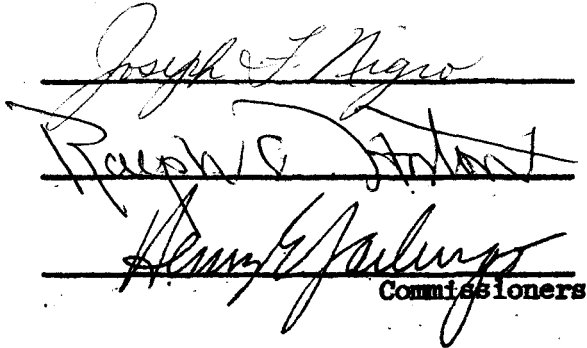 Joseph F. Nigro
Ralph
Henry E
Commissioners